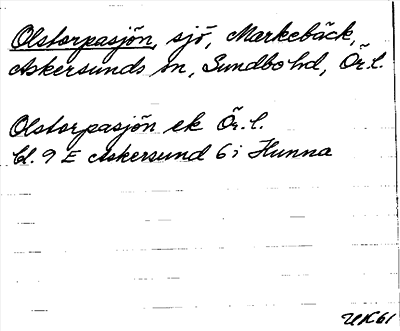 Olstorpasjön, sjö, Markebäck,
Askersunds sn, Sundbo hd, Ör.l.
Olstorpasjön ek Ör.l.
bl. 9 E Askersund 6i Hunna
UK61